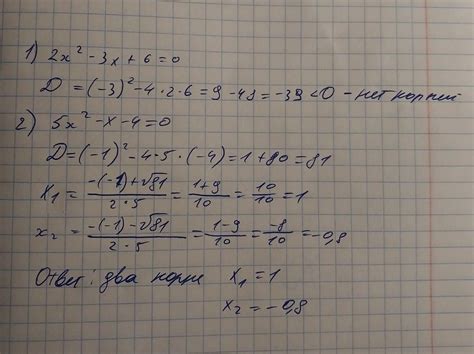 1) 2x² - 3x + 6 = 0
D = (-3)² - 4 · 2 · 6 = 9 - 48 = -39 < 0 - нет корней
2) 5x² - x - 4 = 0
D = (-1)² - 4 · 5 · (-4) = 1 + 80 = 81
x₁ = (-(-1) + √81) / (2 · 5) = (1+9)/10 = 10/10 = 1
x₂ = (-(-1) - √81) / (2 · 5) = (1-9)/10 = -8/10 = -0,8
Ответ: два корня x₁ = 1
x₂ = -0,8